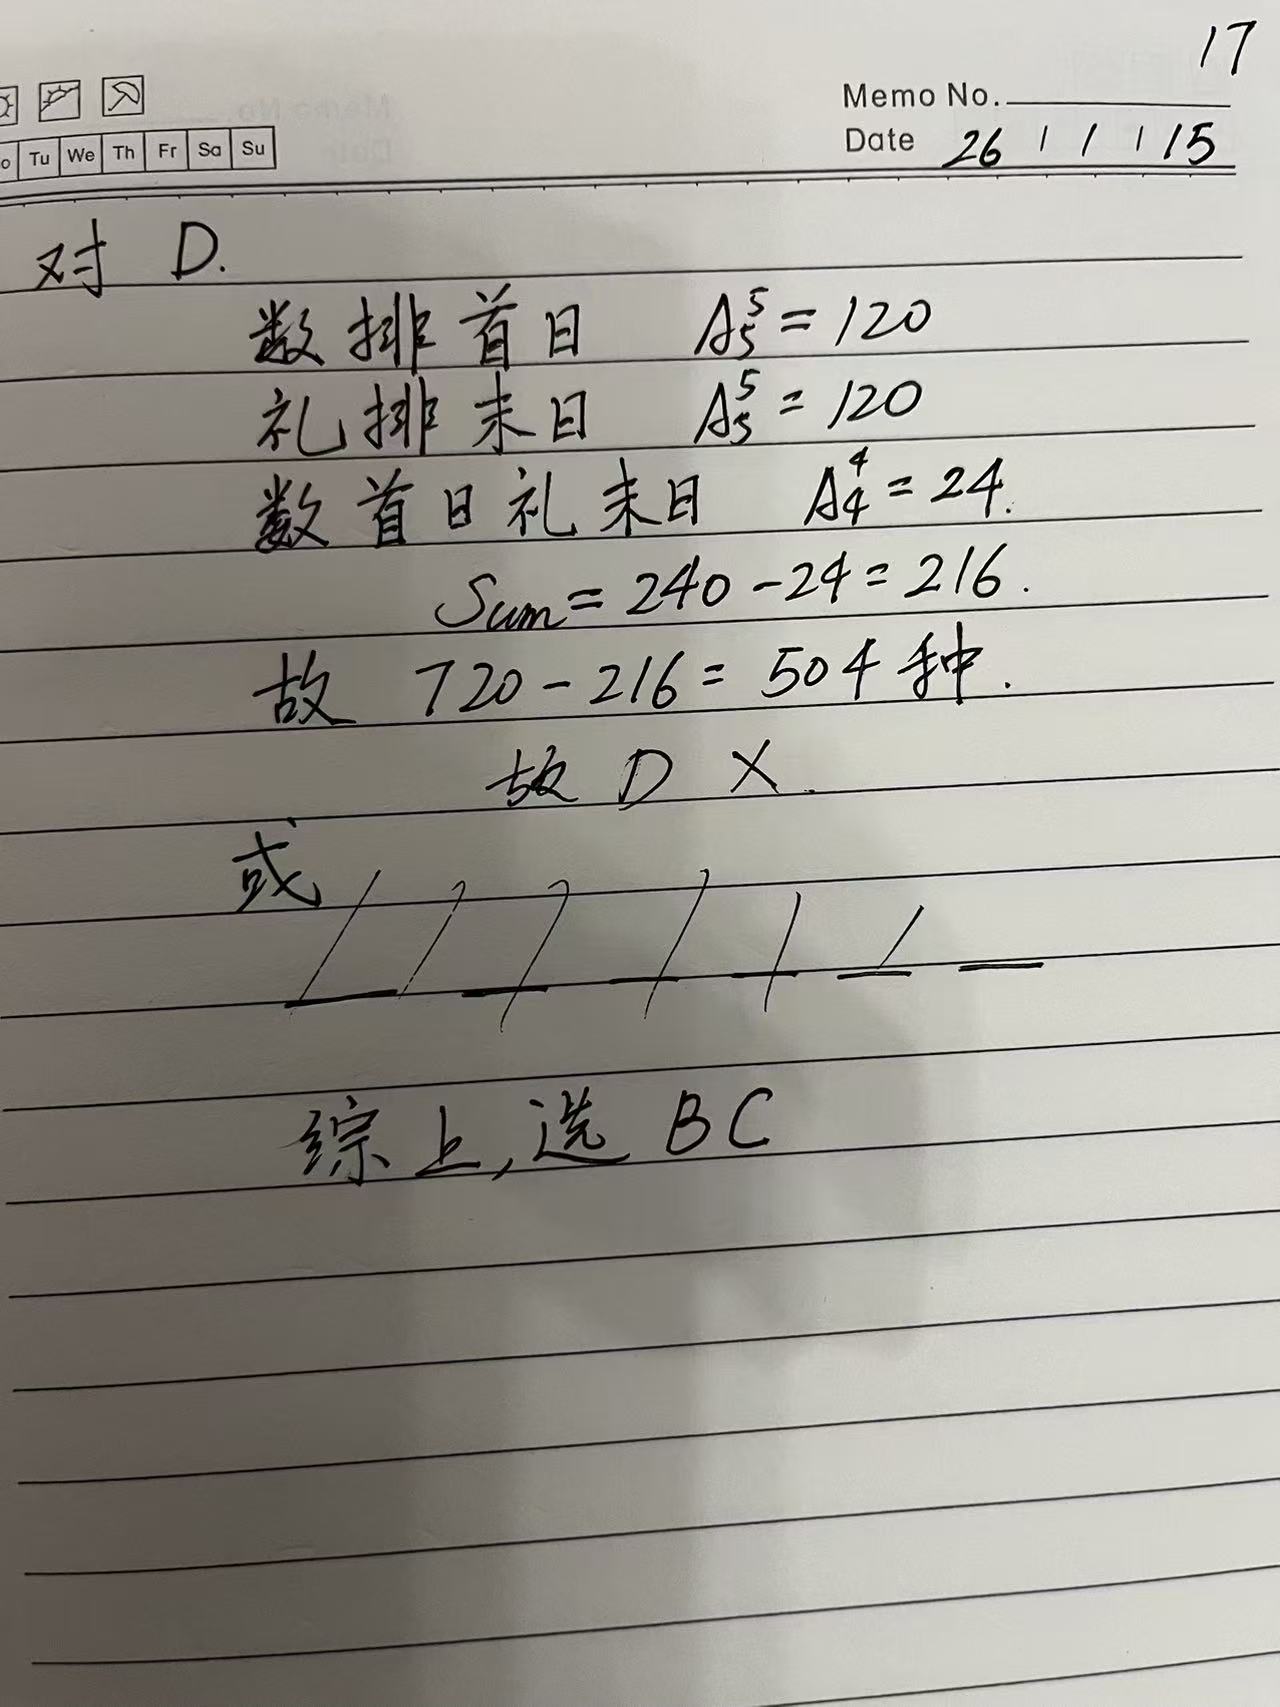 17
Memo No.
o Tu We Th Fr Sa Su
Date 26 / 1 / 15
对 D.
数排首日 A₅⁵ = 120
礼排末日 A₅⁵ = 120
数首日礼末日 A₄⁴ = 24.
Sum = 240 - 24 = 216.
故 720 - 216 = 504 种.
故 D ×.
或
综上,选 BC